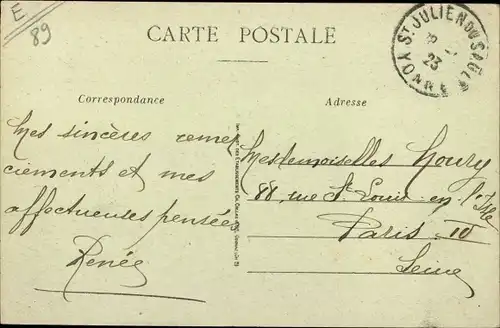 E
89
CARTE POSTALE
ST JULIEN DU SAULT
23
YONNE
Correspondance
Adresse
Mes sincères remer
ciements et mes
affectueuses pensées
Renée
Mesdemoiselles Noury
88 rue St Louis en l'Ile
Paris IV
Seine